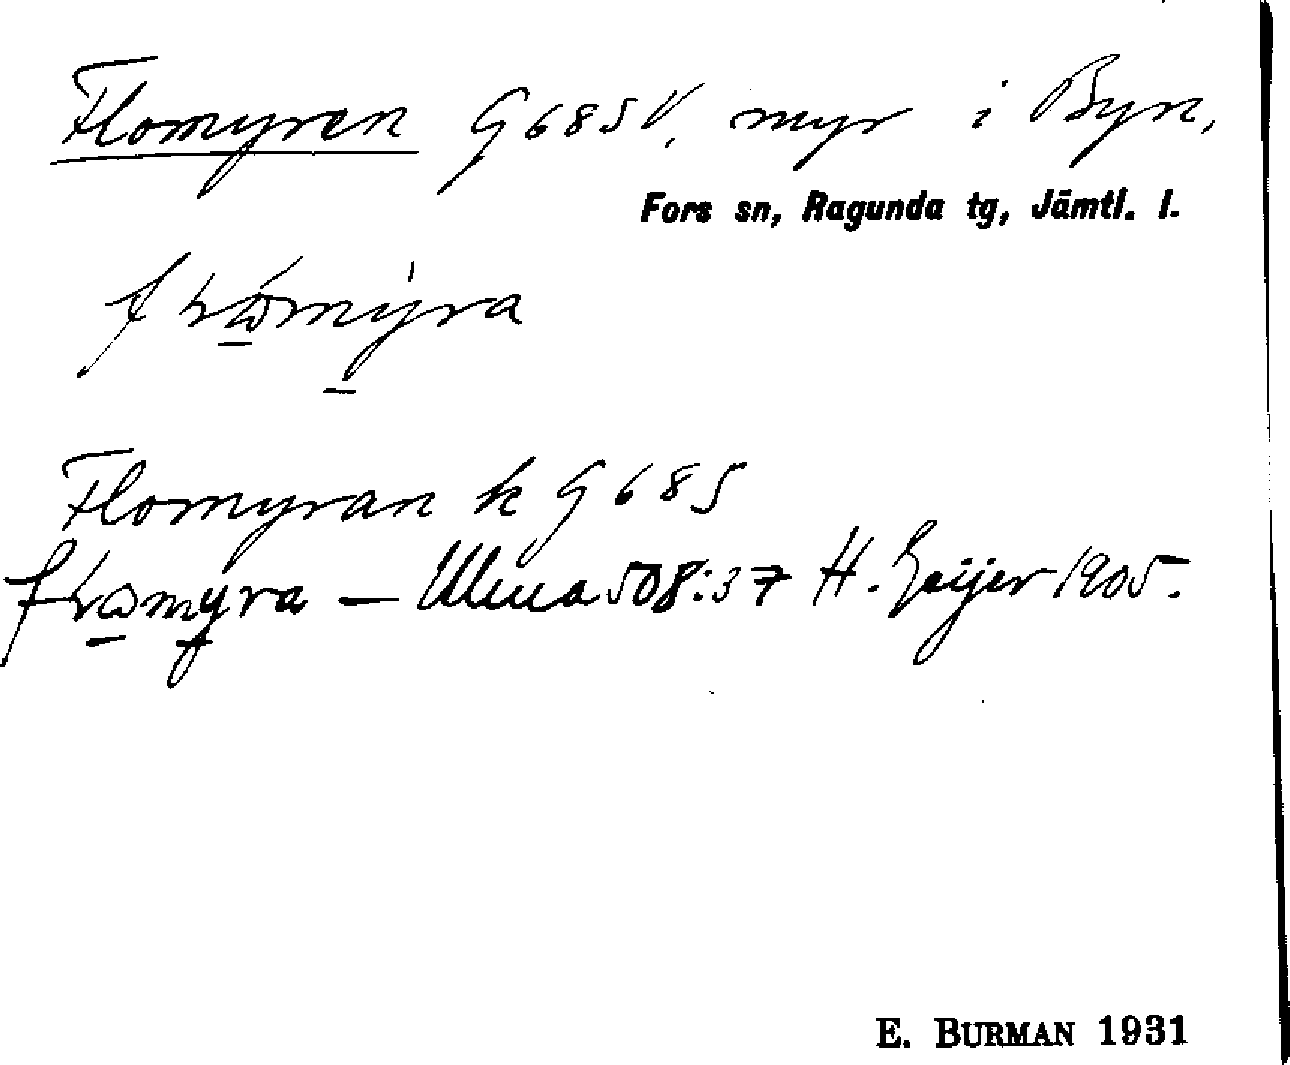 Flomyren G685V, myr i Byn,
Fors sn, Ragunda tg, Jämtl. l.
Flomyran k G685
Ulma 508:37 H. Geijer 1905.
E. BURMAN 1931